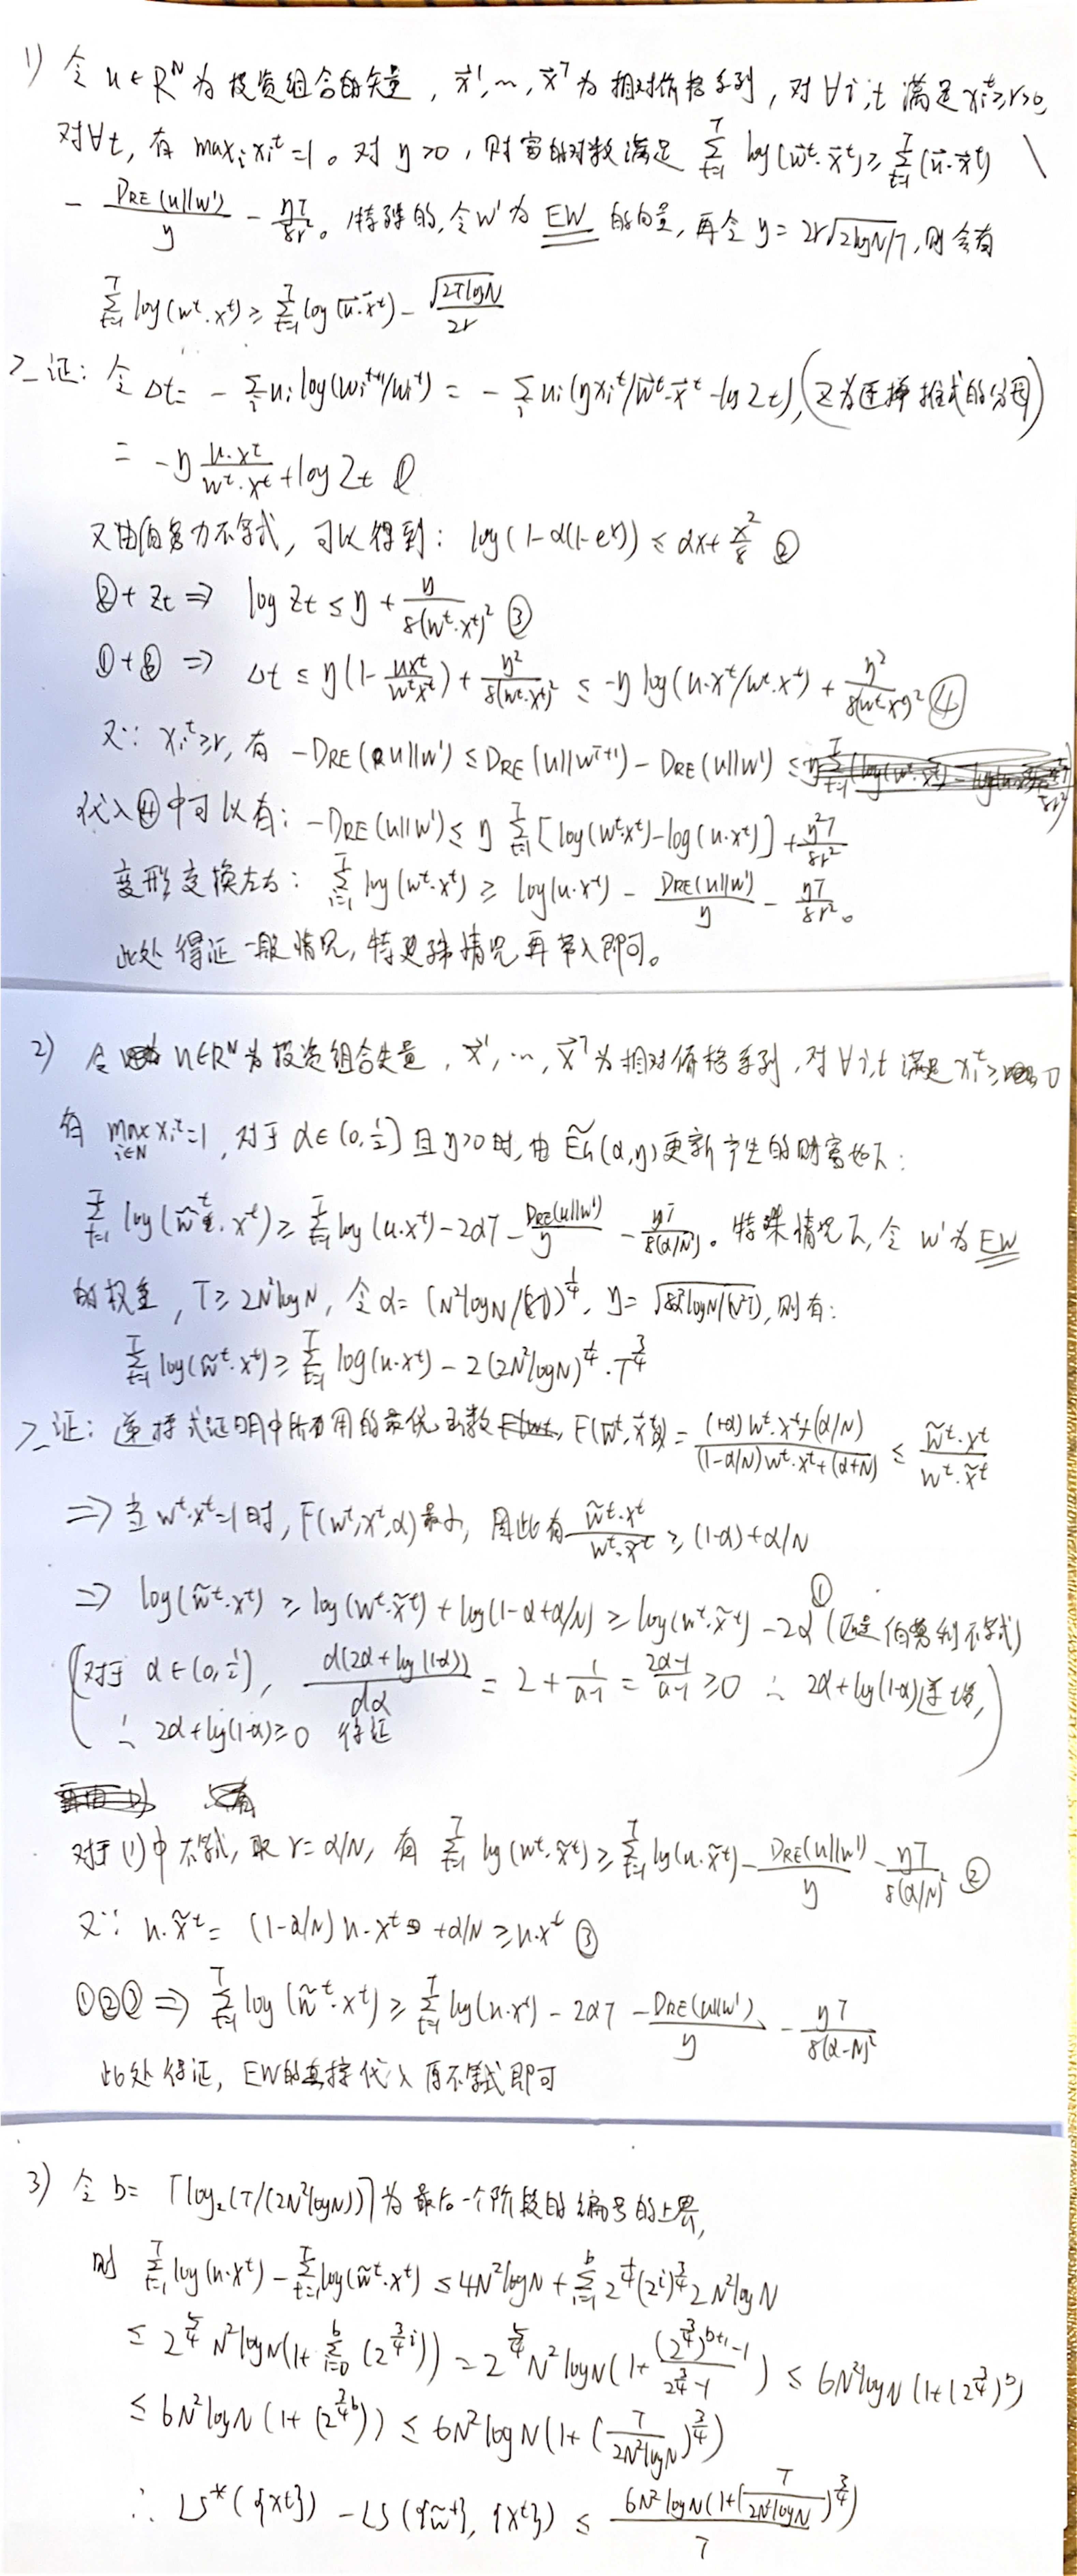 1) 令 u∈R^N 为投资组合的矢量, x⃗^1,…,x⃗^T 为相对价格系列, 对∀i,t 满足 x_i^t≥r>0,
对∀t, 有 max_i x_i^t=1。对 η>0, 财富的对数满足 Σ_{t=1}^T log(w⃗^t·x⃗^t) ≥ Σ_{t=1}^T (u⃗·x⃗^t)
- D_RE(u||w^1)/y - ηT/8r²。特殊的,令w^1为 EW 的向量, 再令 y = 2r√(2logN/T), 则会有
Σ_{t=1}^T log(w^t·x^t) ≥ Σ_{t=1}^T log(u⃗·x⃗^t) - √(2TlogN)/2r
>_证: 令 Δt = -Σ_i u_i log(w_i^{t+1}/w_i^t) = -Σ_i u_i(ηx_i^t/w⃗^t·x⃗^t - log Zt), (Z为连择推式的分母)
= -η u·x^t/w^t·x^t + log Zt ①
又由伯努力不等式, 可以得到: log(1-α(1-e^x)) ≤ αx + x²/8 ②
②+Zt ⇒ log Zt ≤ η + η/8(w^t·x^t)² ③
①+③ ⇒ Δt ≤ η(1 - ux^t/w^tx^t) + η²/8(w^t·x^t)² ≤ -η log(u·x^t/w^t·x^t) + η²/8(w^t·x^t)² ④
又∵ x_i^t≥r, 有 -D_RE(u||w^1) ≤ D_RE(u||w^{T+1}) - D_RE(u||w^1) ≤
代入④中可以有: -D_RE(u||w^1) ≤ η Σ_{t=1}^T [log(w^t·x^t) - log(u·x^t)] + η²T/8r²
变形交换左右: Σ_{i=1}^T log(w^t·x^t) ≥ log(u·x^t) - D_RE(u||w^1)/y - ηT/8r²。
此处得证一般情况, 特殊情况再带入即可。
2) 令 u∈R^N 为投资组合矢量, x⃗^1,…,x⃗^T 为相对价格系列, 对∀i,t 满足 x_i^t≥0
有 max_{i∈N} x_i^t=1, 对于 α∈(0,½] 且 η>0时, 由 E͂G(α,η) 更新产生的财富如下:
Σ_{t=1}^T log(w̃^t·x^t) ≥ Σ_{t=1}^T log(u·x^t) - 2αT - D_RE(u||w^1)/y - ηT/8(α/N)。特殊情况下, 令 w^1为 EW
的权重, T≥2N²logN, 令 α = (N²logN/(8T))^{1/4}, η = √(8α²logN/(N²T)), 则有:
Σ_{t=1}^T log(w̃^t·x^t) ≥ Σ_{t=1}^T log(u·x^t) - 2(2N²logN)^{1/4}·T^{3/4}
>_证: 连择式证明中所有用的最优函数 F(w⃗^t,x⃗^t,α) = (1+α)w^t·x^t+(α/N) / (1-α/N)w^t·x^t+(α+N) ≤ w̃^t·x^t/w^t·x̃^t
⇒ 当 w^t·x^t=1时, F(w^t,x^t,α)最小, 因此有 w̃^t·x^t/w^t·x̃^t ≥ (1-α)+α/N
⇒ log(w̃^t·x^t) ≥ log(w^t·x̃^t) + log(1-α+α/N) ≥ log(w^t·x̃^t) - 2α ① (还是伯努利不等式)
(对于 α∈(0,½], d(2α+log(1-α))/dα = 2 + 1/(α-1) = (2α-1)/(α-1) ≥0 ∴ 2α+log(1-α)递增,
∴ 2α+log(1-α)≥0 得证)
对于(1)中不等式, 取 r=α/N, 有 Σ_{t=1}^T log(w^t·x̃^t) ≥ Σ_{t=1}^T log(u·x̃^t) - D_RE(u||w^1)/y - ηT/8(α/N)² ②
又∵ u·x̃^t = (1-α/N)u·x^t + α/N ≥ u·x^t ③
①②③ ⇒ Σ_{t=1}^T log(w̃^t·x^t) ≥ Σ_{t=1}^T log(u·x^t) - 2αT - D_RE(u||w^1)/y - ηT/8(α-N)²
此处得证, EW的直接代入原不等式即可
3) 令 b = ⌈log₂(T/(2N²logN))⌉ 为最后一个阶段的编号的上界,
则 Σ_{t=1}^T log(u·x^t) - Σ_{t=1}^T log(w̃^t·x^t) ≤ 4N²logN + Σ_{i=1}^b 2^{1/4}(2^i)^{3/4} 2N²logN
≤ 2^{5/4} N²logN(1+Σ_{i=0}^b (2^{3/4 i})) = 2^{5/4} N²logN(1+ ((2^{3/4})^{b+1}-1)/(2^{3/4}-1)) ≤ 6N²logN(1+(2^{3/4})^b)
≤ 6N²logN(1+(2^{3/4 b})) ≤ 6N²logN(1+(T/2N²logN)^{3/4})
∴ LS*({x^t}) - LS({w̃^t},{x^t}) ≤ 6N²logN(1+(T/2N²logN)^{3/4}) / T